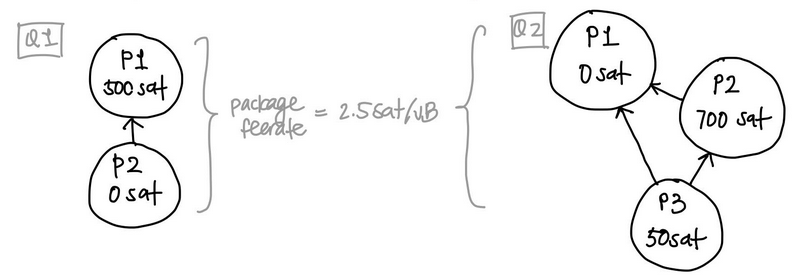 Q1
P1
500 sat
P2
0 sat
package
feerate = 2.5 sat/vB
Q2
P1
0 sat
P2
700 sat
P3
50 sat